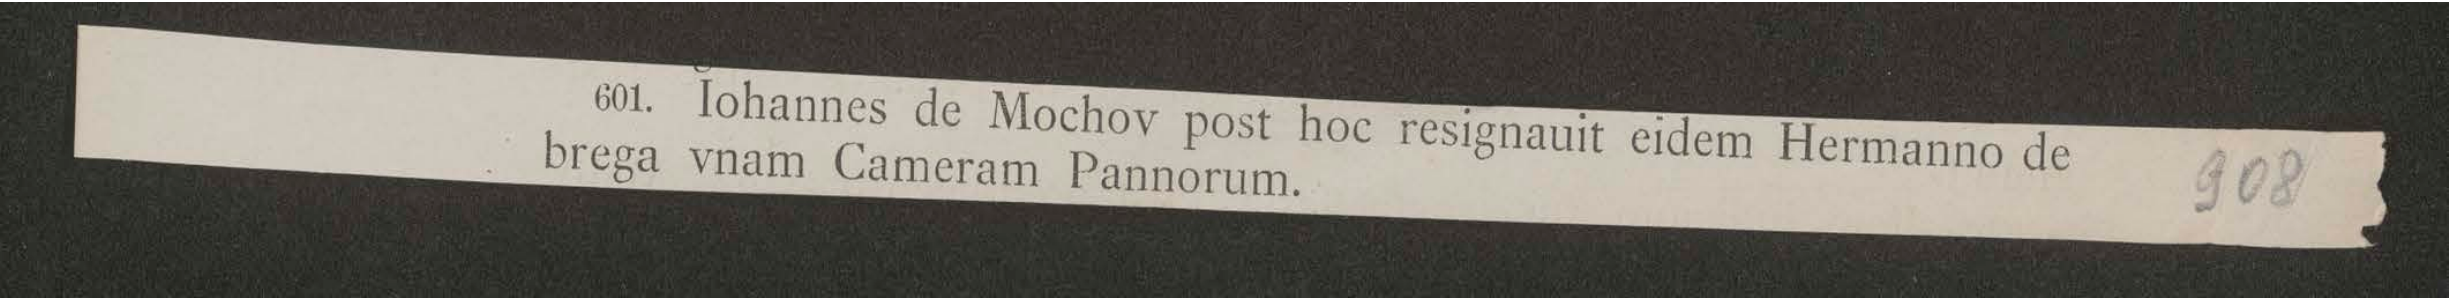 601. Iohannes de Mochov post hoc resignauit eidem Hermanno de
brega vnam Cameram Pannorum.
908